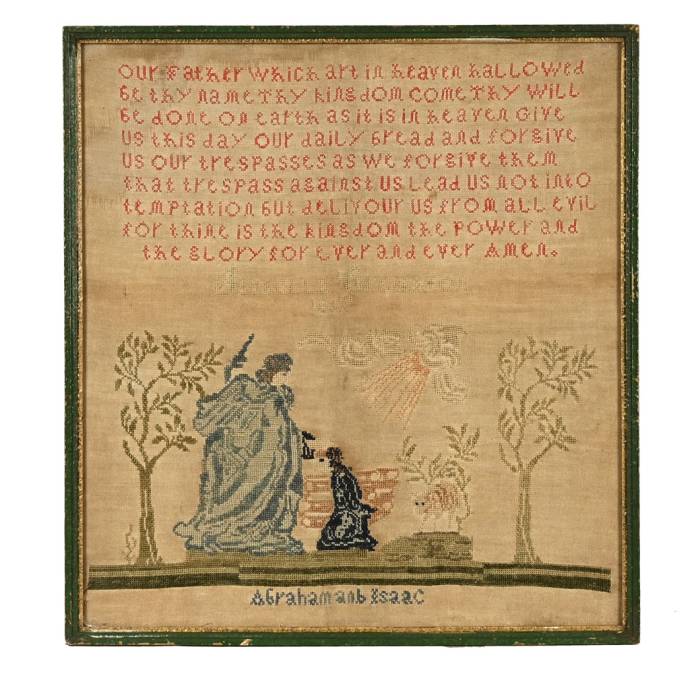 Our Father which art in heaven hallowed
be thy name Thy kingdom come Thy will
be done on earth as it is in heaven Give
us this day our daily bread and forgive
us our trespasses as we forgive them
that trespass against us lead us not into
temptation but delivour us from all evil
for thine is the kingdom the power and
the glory for ever and ever Amen.
Abraham anb Isaac